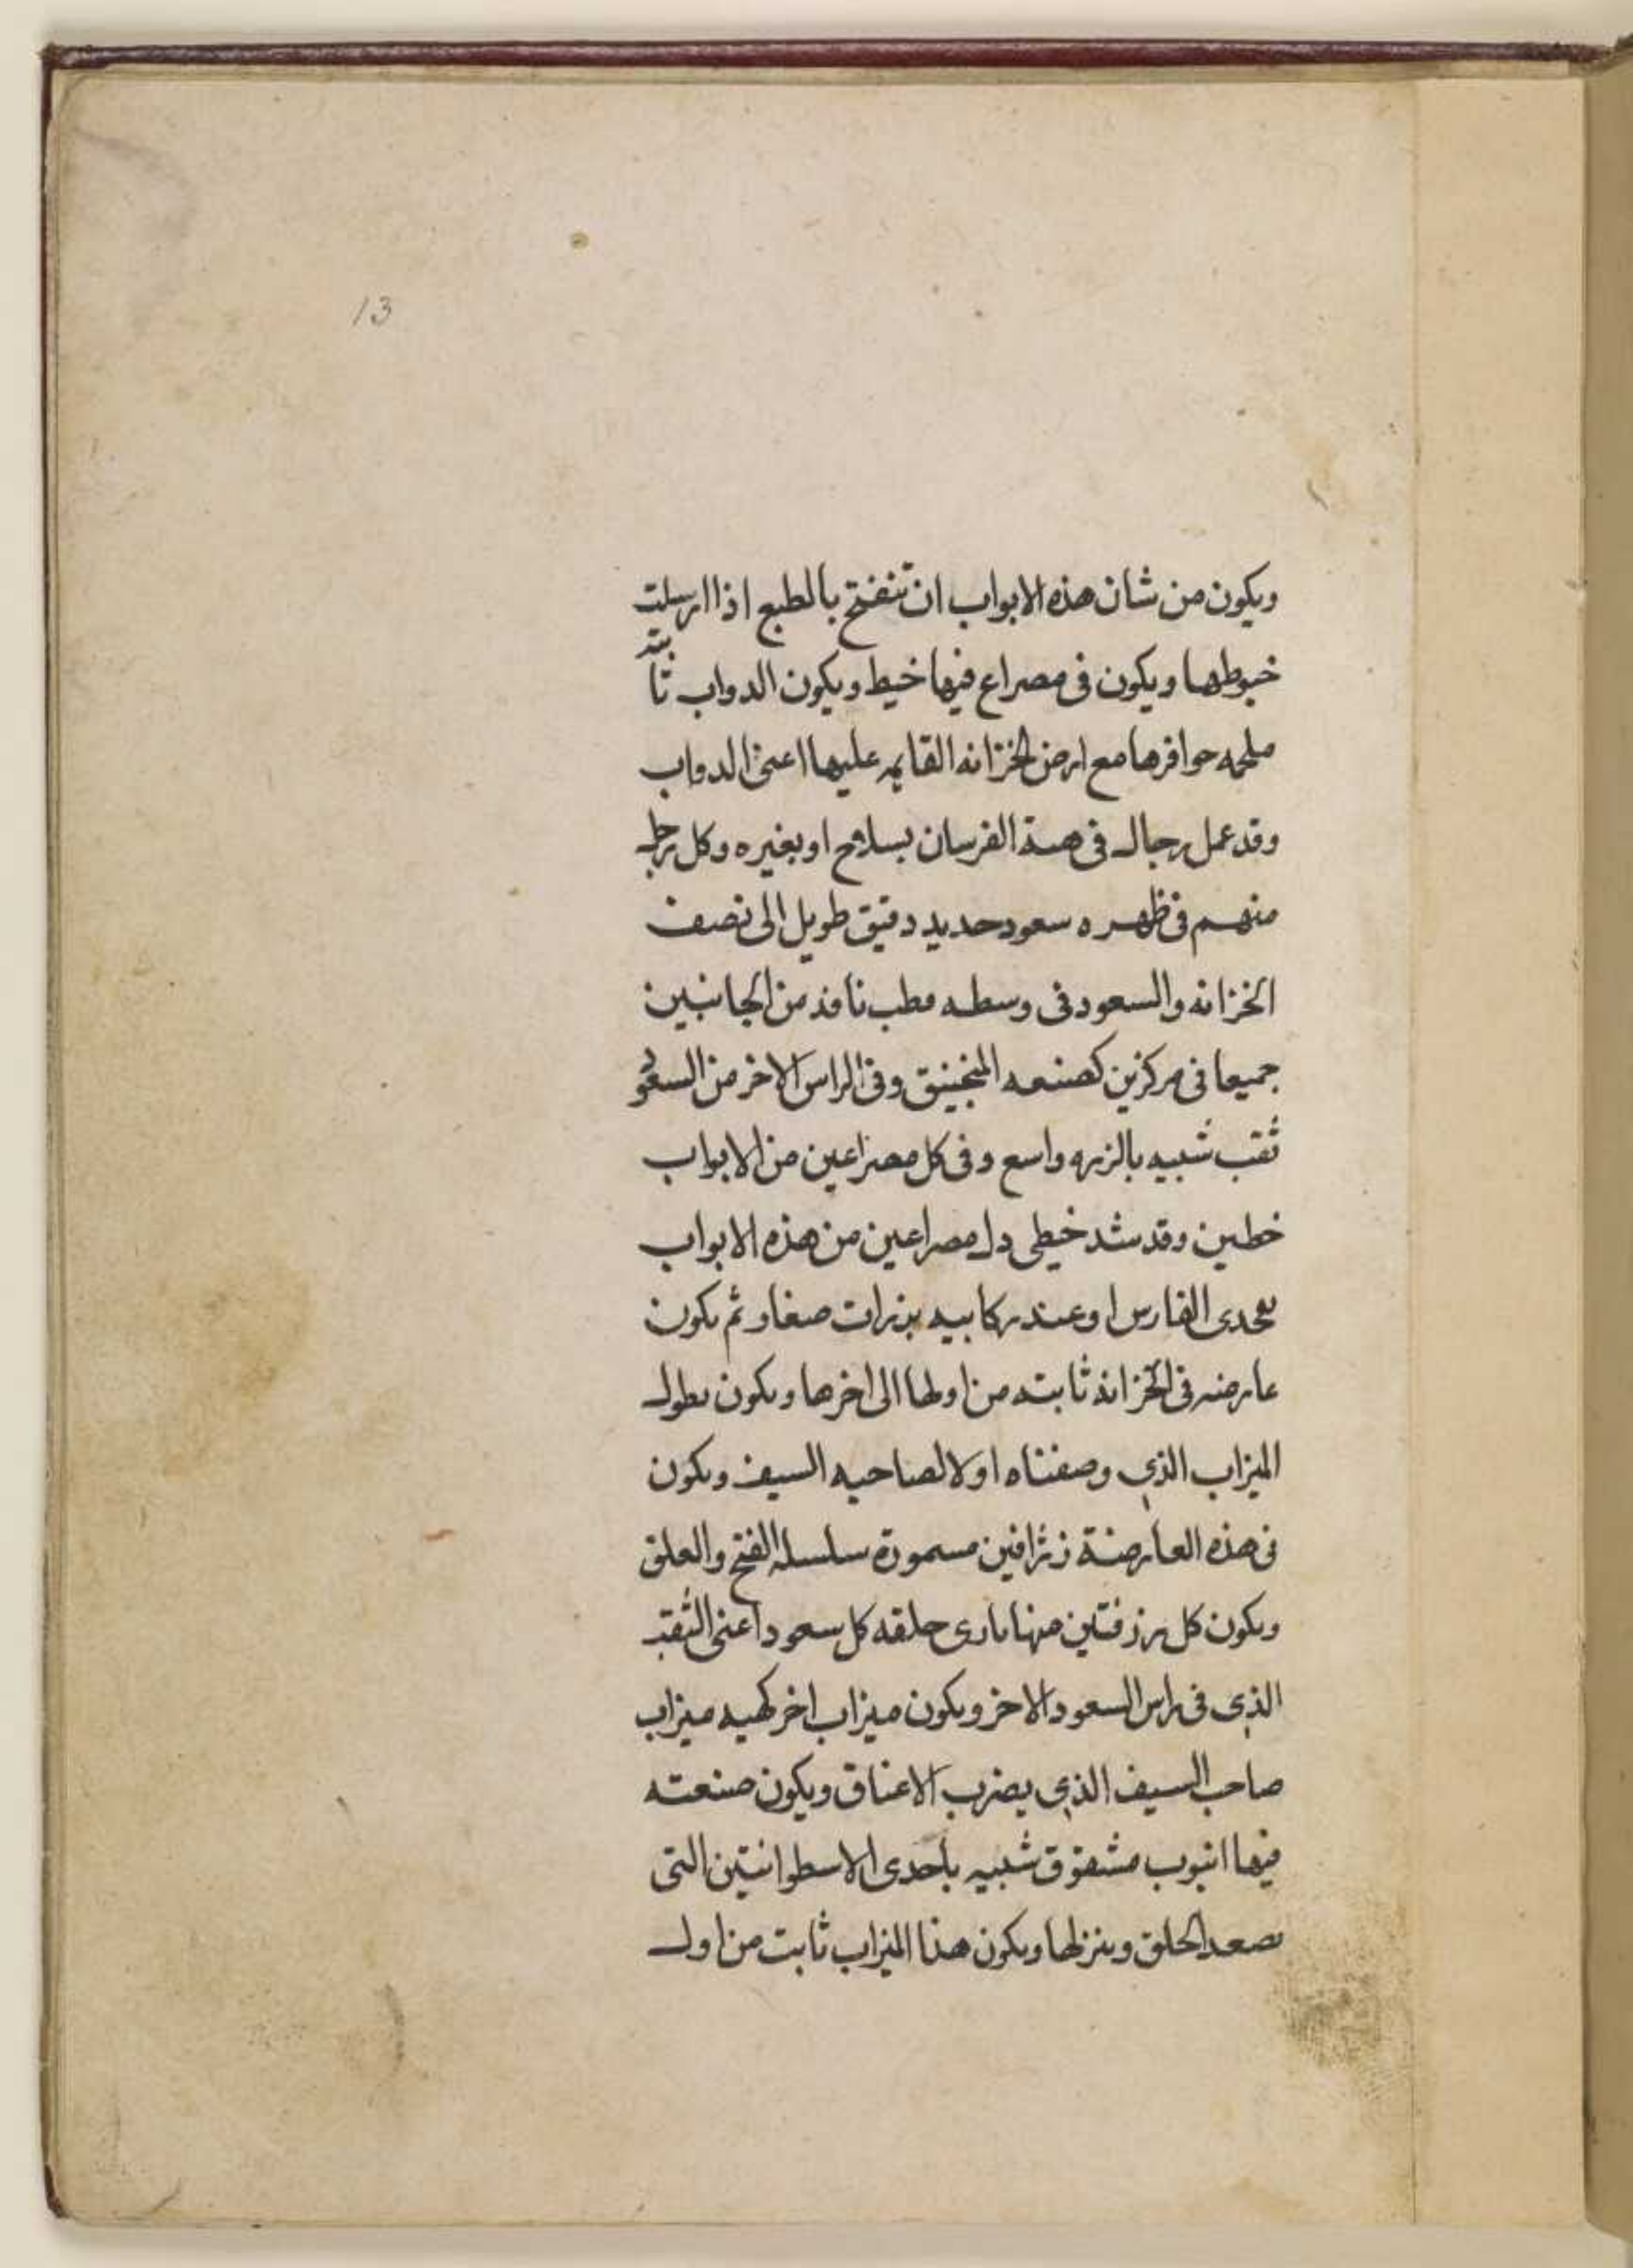 13
ويكون من شان هذه الابواب ان تنفتح بالطبع اذا ارسلت
خيوطها ويكون فى مصراع فيها خيط ويكون الدواب ثابته
ملحمه حوافرها مع ارض الخزانه القايمه عليها اعنى الدواب
وقد عمل رجال فى هيئة الفرسان بسلاح او بغيره وكل رجل
منهم فى ظهره سعود حديد دقيق طويل الى نصف
الخزانه والسعود فى وسطه قطب نافذ من الجانبين
جميعا فى مركزين كصنعه المنجنيق وفى الراس الاخر من السعود
ثقب شبيه بالزره واسع وفى كل مصراعين من الابواب
خطين وقد شد خيطى مصراعين من هذه الابواب
الفارس او عند ركابيه بزرات صغار ثم يكون
عارضه فى الخزانه ثابته من اولها الى اخرها ويكون بطول
الميزاب الذى وصفناه اولا لصاحبه السيف ويكون
فى هذه العارضة مسمورة سلسله الفتح والغلق
ويكون كل رزفتين منها بازى حلقه كل سعود اعنى الثقب
الذى فى راس السعود الاخر ويكون ميزاب اخر كهيه ميزاب
صاحب السيف الذى يضرب الاعناق ويكون صنعته
فيها انبوب مشقوق شبيه باحدى الاسطوانتين التى
تصعد الحلق وينزلها ويكون هذا الميزاب ثابت من اول